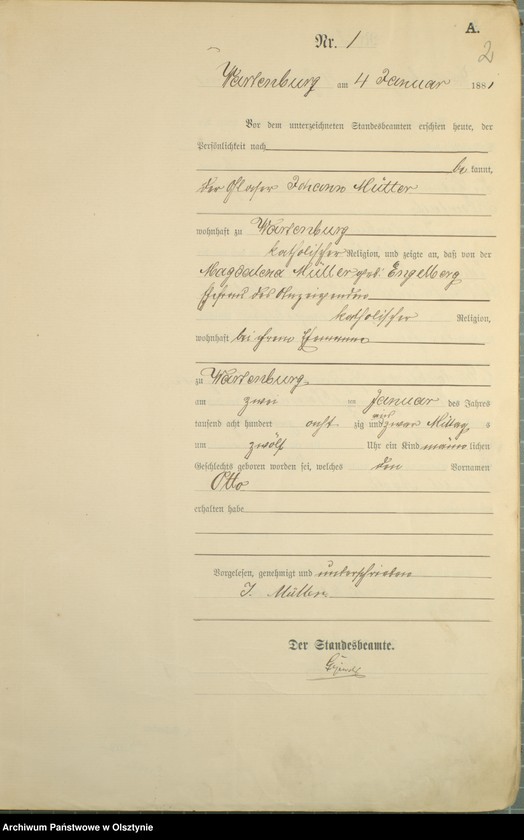 A.
2
Nr. 1
Wartenburg am 4 Januar 1881
Vor dem unterzeichneten Standesbeamten erschien heute, der
Persönlichkeit nach
be kannt,
der Glaser Johann Müller
wohnhaft zu Wartenburg
katholischer Religion, und zeigte an, daß von der
Magdalena Müller geb: Engelberg
Ehefrau des Anzeigenden
katholischer Religion,
wohnhaft bei ihrem Ehemanne
zu Wartenburg
am zwei ten Januar des Jahres
tausend acht hundert acht zig und eins zwar Mittag s
um zwölf Uhr ein Kind männ lichen
Geschlechts geboren worden sei, welches den Vornamen
Otto
erhalten habe
Vorgelesen, genehmigt und unterschrieben
J. Müller
Der Standesbeamte.
Archiwum Państwowe w Olsztynie